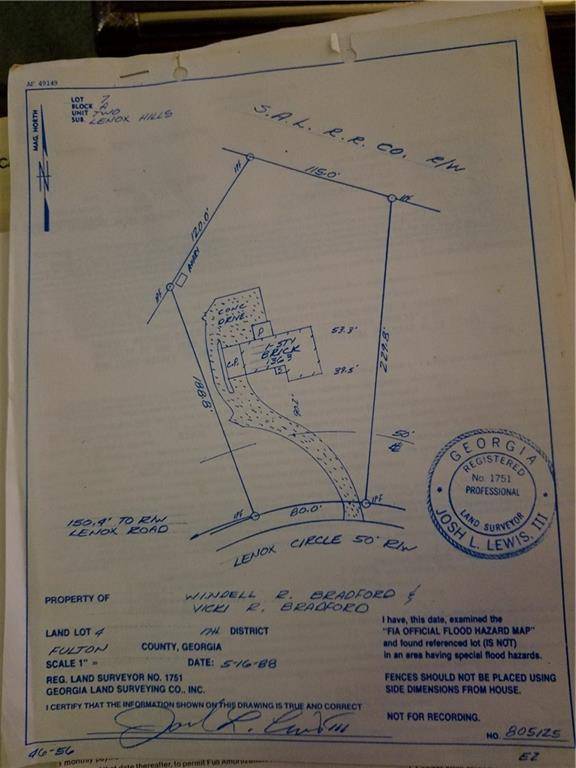 AF 49149
LOT 7
BLOCK A
UNIT TWO
SUB. LENOX HILLS
MAG. NORTH
S.A.L. R.R. CO. R/W
115.0'
IPF
IPF
120.0'
IPF
CONC
DRIVE
P
1-STY
BRICK
1363
C.P.
S
53.3'
39.5'
229.8'
188.8'
80.2'
50'
IPF
IPF
80.0'
150.4' TO R/W
LENOX ROAD
LENOX CIRCLE 50' R/W
GEORGIA
REGISTERED
No. 1751
PROFESSIONAL
LAND SURVEYOR
JOSH L. LEWIS, III
PROPERTY OF WINDELL R. BRADFORD &
VICKI R. BRADFORD
LAND LOT 4 17th DISTRICT
FULTON COUNTY, GEORGIA
SCALE 1" = DATE: 5-16-88
REG. LAND SURVEYOR NO. 1751
GEORGIA LAND SURVEYING CO. INC.
I CERTIFY THAT THE INFORMATION SHOWN ON THIS DRAWING IS TRUE AND CORRECT
I have, this date, examined the
"FIA OFFICIAL FLOOD HAZARD MAP"
and found referenced lot (IS NOT)
in an area having special flood hazards.
FENCES SHOULD NOT BE PLACED USING
SIDE DIMENSIONS FROM HOUSE.
NOT FOR RECORDING.
NO. 805125
46-56
EZ